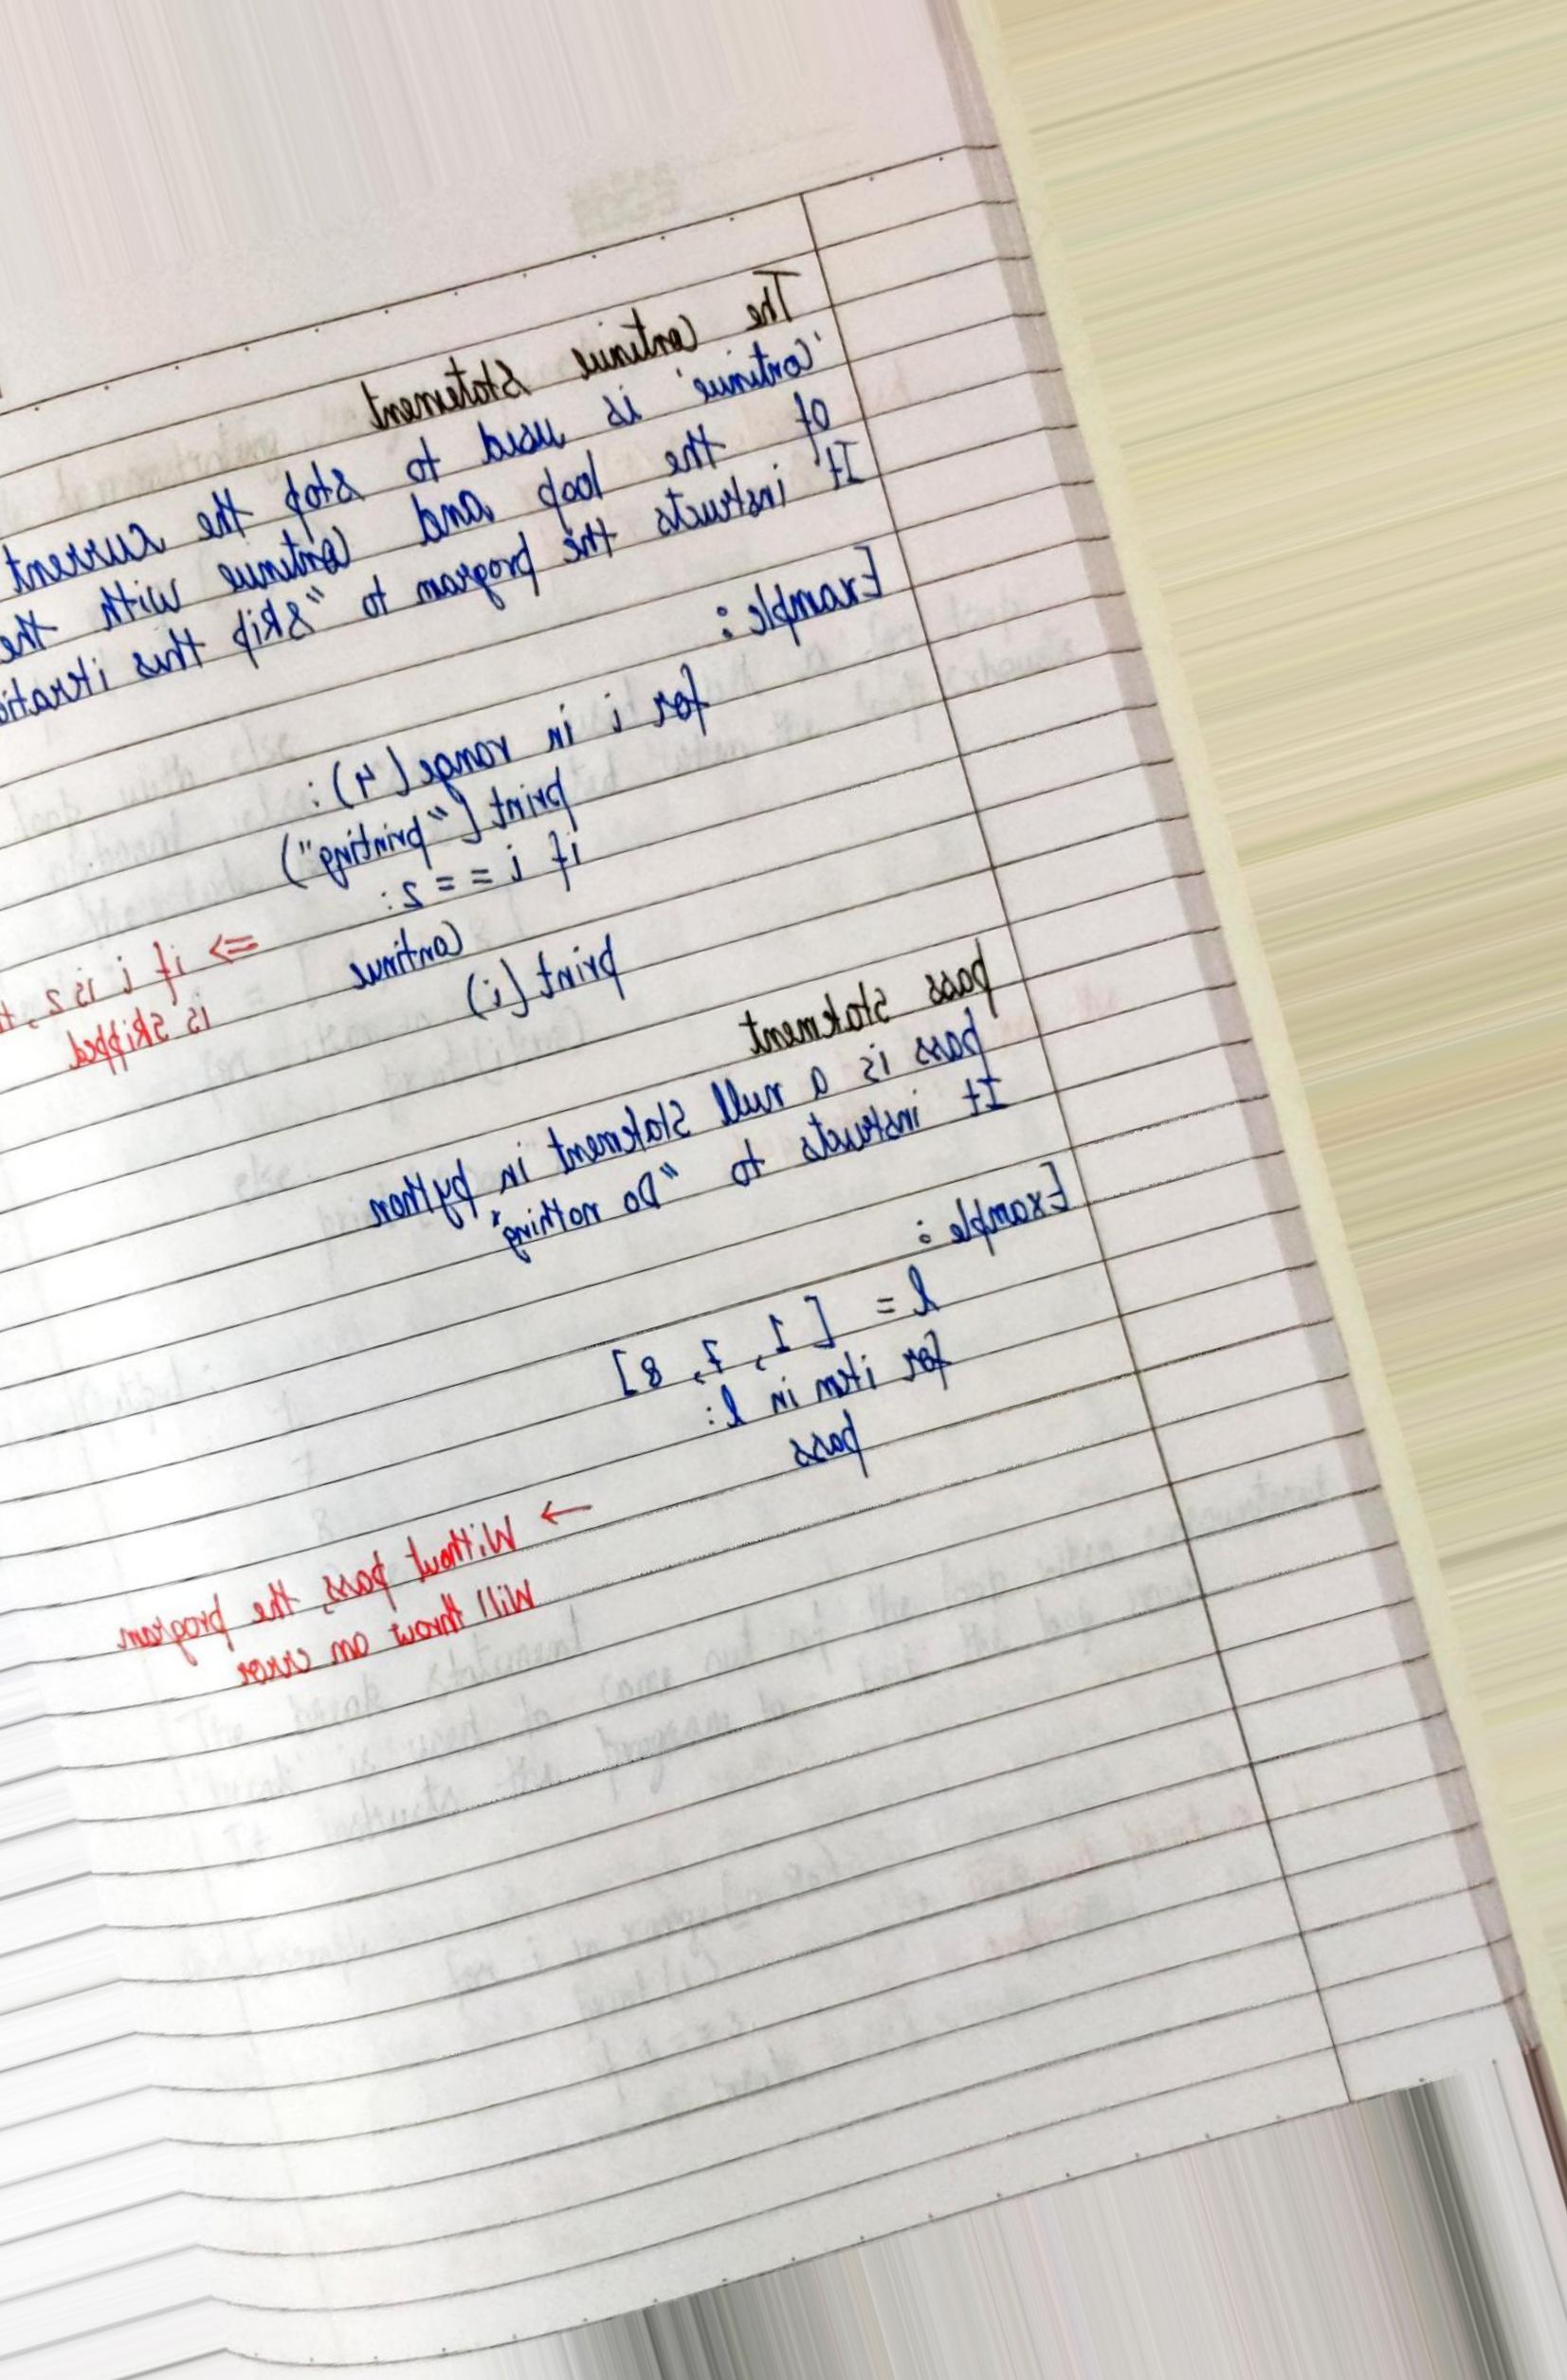 The Continue Statement
'Continue' is used to stop the current
of the loop and Continue with the
It instructs the program to "skip this iteratio
Example :
for i in range (4) :
print ("printing")
if i == 2 :
Continue
print (i)
=> if i is 2, t
is skipped
pass statement
pass is a null statement in python
It instructs to "Do nothing"
Example :
l = [1, 7, 8]
for item in l :
pass
→ Without pass, the program
Will throw an error